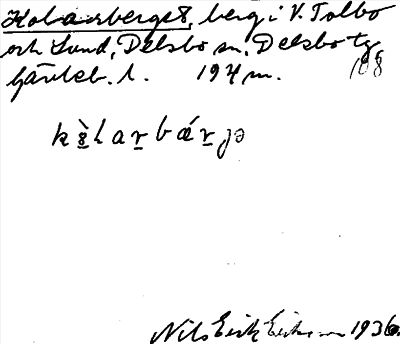 Kolarberget, berg i V. Tolbo
och Sund, Delsbo sn. Delsbo tg
Gävleb. l. 194 m. 108
kòlarbárjə
Nils Erik Eriksson 1936.